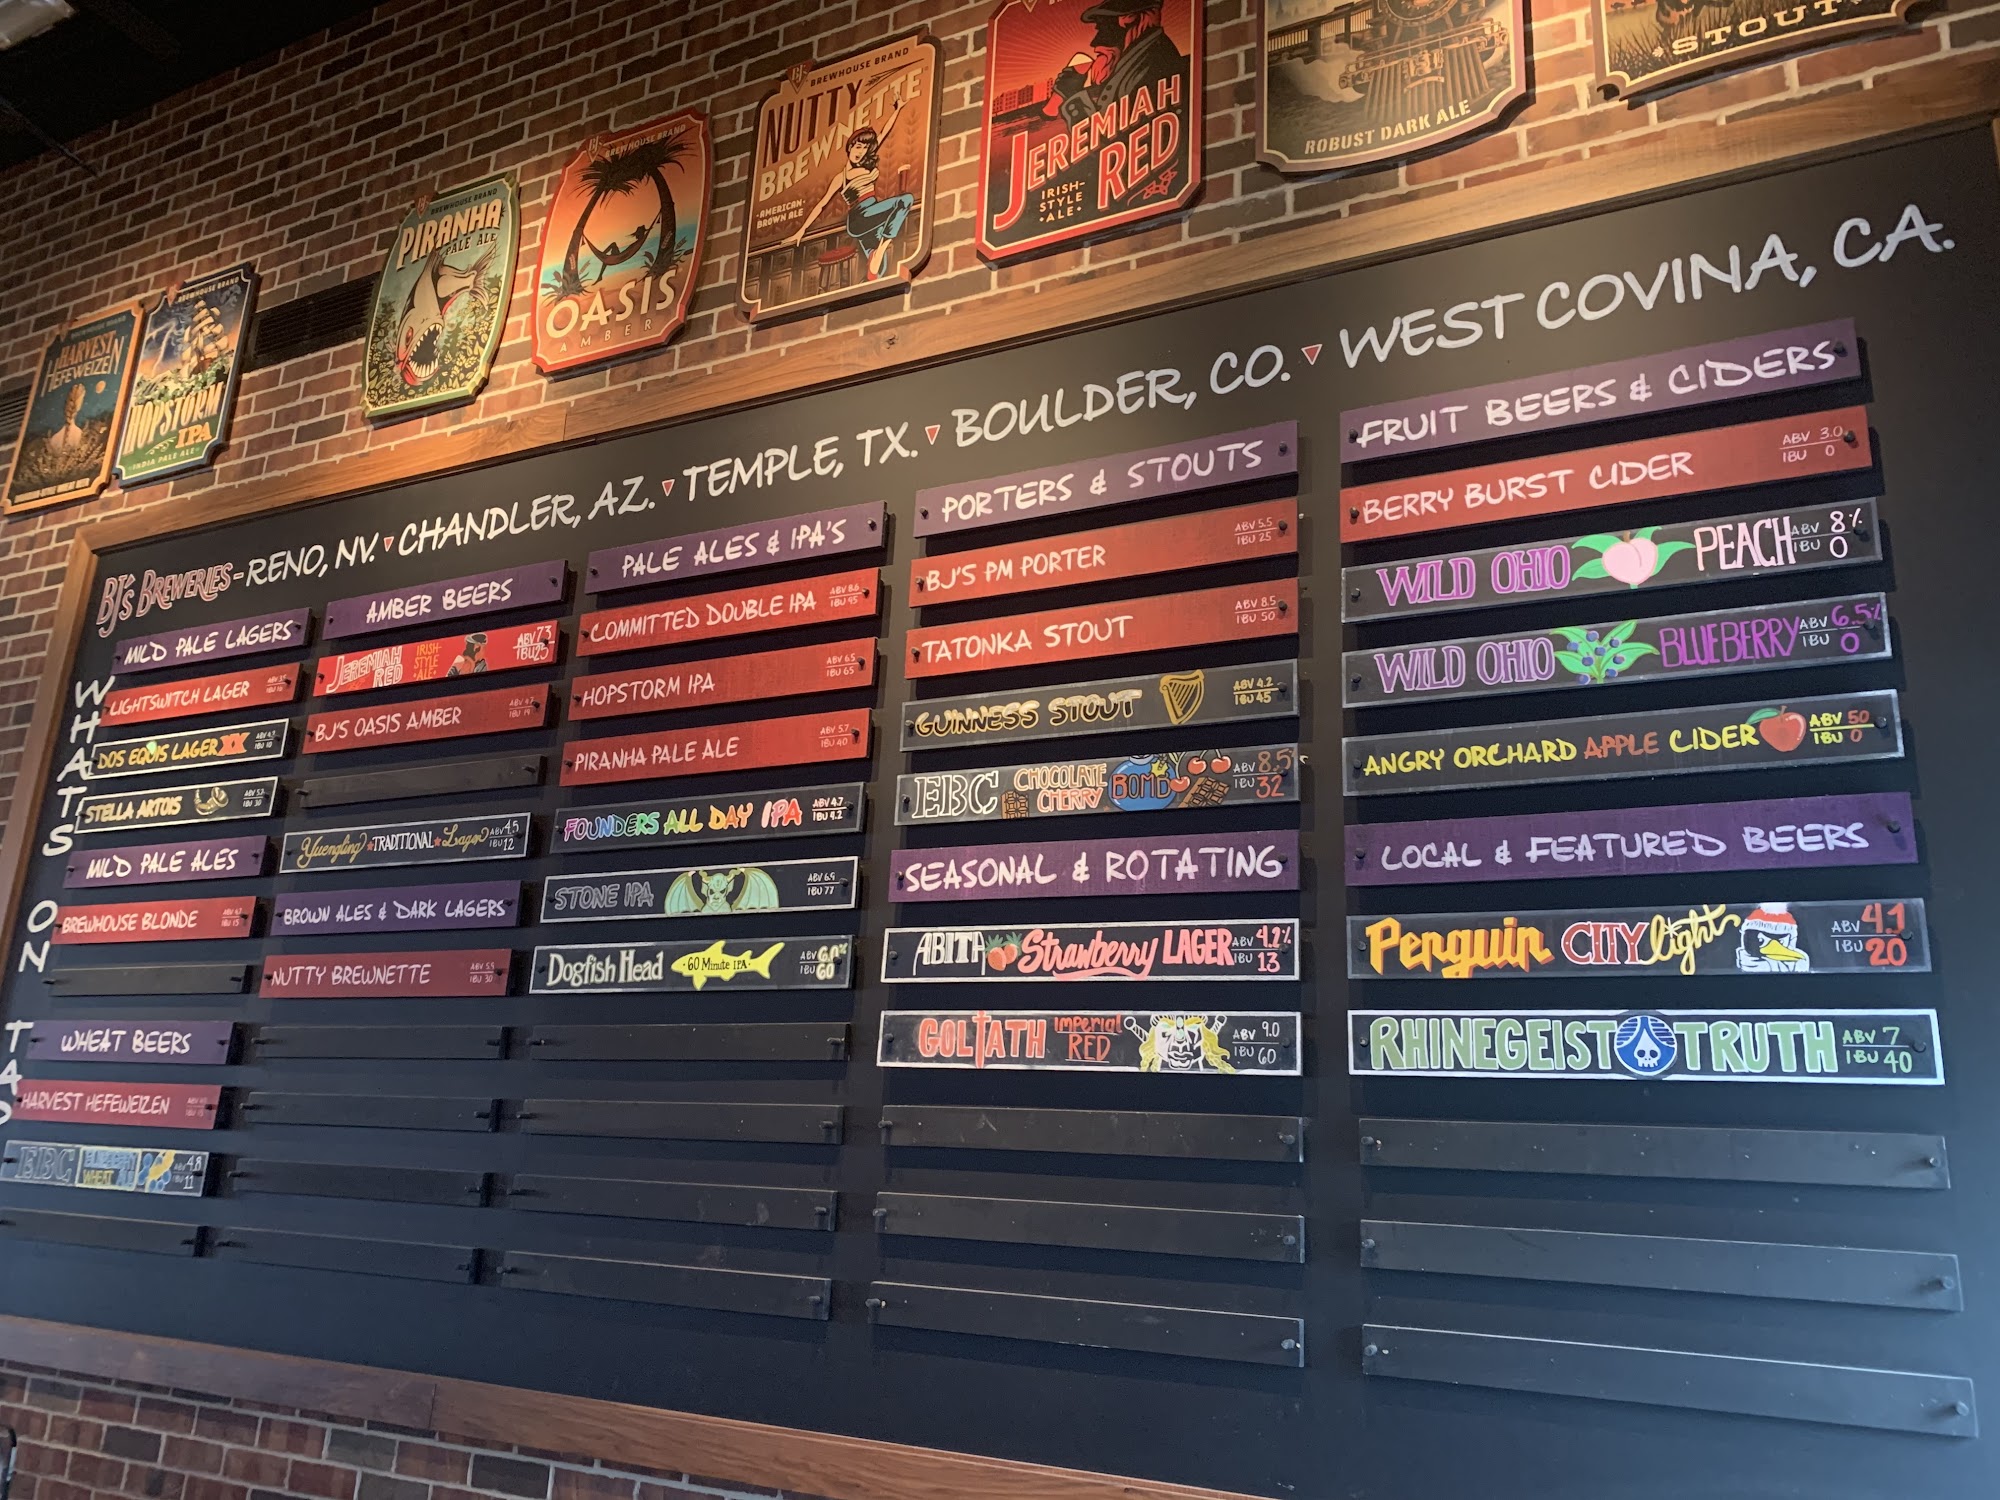 STOUT
BREWHOUSE BRAND
HARVEST
HEFEWEIZEN
BREWHOUSE BRAND
HOPSTORM
IPA
INDIA PALE ALE
BREWHOUSE BRAND
PIRANHA
PALE ALE
BREWHOUSE BRAND
OASIS
AMBER
BJ's BREWHOUSE BRAND
NUTTY
BREWNETTE
AMERICAN
BROWN ALE
JEREMIAH
RED
IRISH-
STYLE
ALE
ROBUST DARK ALE
BJ'S BREWERIES - RENO, NV. CHANDLER, AZ. TEMPLE, TX. BOULDER, CO. WEST COVINA, CA.
WHAT'S ON TAP
MILD PALE LAGERS
LIGHTSWITCH LAGER ABV IBU
DOS EQUIS LAGER XX ABV IBU 10
STELLA ARTOIS ABV 5.2 IBU 30
MILD PALE ALES
BREWHOUSE BLONDE ABV IBU 15
WHEAT BEERS
HARVEST HEFEWEIZEN ABV IBU
EBC BLUEBERRY WHEAT ALE ABV 4.8 IBU 11
AMBER BEERS
JEREMIAH RED IRISH-STYLE ALE ABV 7.3 IBU 25
BJ'S OASIS AMBER ABV IBU 19
Yuengling TRADITIONAL Lager ABV 4.5 IBU 12
BROWN ALES & DARK LAGERS
NUTTY BREWNETTE ABV 5.9 IBU 30
PALE ALES & IPA'S
COMMITTED DOUBLE IPA ABV 8.6 IBU 95
HOPSTORM IPA ABV 6.5 IBU 65
PIRANHA PALE ALE ABV 5.7 IBU 40
FOUNDERS ALL DAY IPA ABV 4.7 IBU 42
STONE IPA ABV 6.9 IBU 77
Dogfish Head 60 Minute IPA. ABV 6.0% IBU 60
PORTERS & STOUTS
BJ'S PM PORTER ABV 5.5 IBU 25
TATONKA STOUT ABV 8.5 IBU 50
GUINNESS STOUT ABV 4.2 IBU 45
EBC CHOCOLATE CHERRY BOMB ABV 8.5 IBU 32
SEASONAL & ROTATING
ABITA Strawberry LAGER ABV 4.2% IBU 13
GOLIATH Imperial RED ABV 9.0 IBU 60
FRUIT BEERS & CIDERS
BERRY BURST CIDER ABV 3.0 IBU 0
WILD OHIO PEACH ABV 8% IBU 0
WILD OHIO BLUEBERRY ABV 6.5% IBU 0
ANGRY ORCHARD APPLE CIDER ABV 50 IBU 0
LOCAL & FEATURED BEERS
Penguin CITY light ABV 4.1 IBU 20
RHINEGEIST TRUTH ABV 7 IBU 40